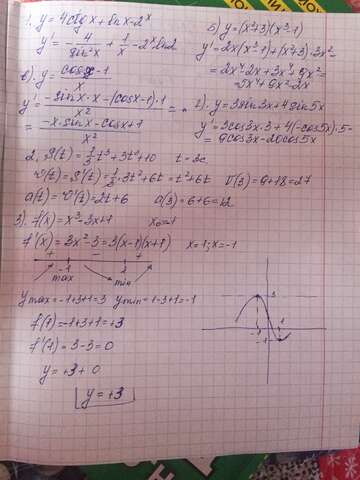 1. y=4ctgx+lnx-2ˣ
y'=-4/sin²x+1/x-2ˣln2
б) y=(x²+3)(x³-1)
y'=2x(x³-1)+(x²+3)·3x²=
=2x⁴-2x+3x⁴+9x²=
=5x⁴+9x²-2x
в) y=(cosx-1)/x
y'=(-sinx·x-(cosx-1)·1)/x²=
=(-x·sinx-cosx+1)/x²
г) y=3sin3x+4sin5x
y'=3cos3x·3+4(-cos5x)·5=
=9cos3x-20cos5x
2. S(t)=1/3t³+3t²+10 t=3c
v(t)=S'(t)=1/3·3t²+6t=t²+6t V(3)=9+18=27
a(t)=v'(t)=2t+6 a(3)=6+6=12
3) f(x)=x³-3x+1 x₀=-1
f'(x)=3x²-3=3(x-1)(x+1) x=1; x=-1
+ - +
-1 1
max min
ymax=-1+3+1=3 ymin=1-3+1=-1
f(1)=-1+3+1=+3
f'(1)=3-3=0
y=+3+0
y=+3
3
1
-1
-1